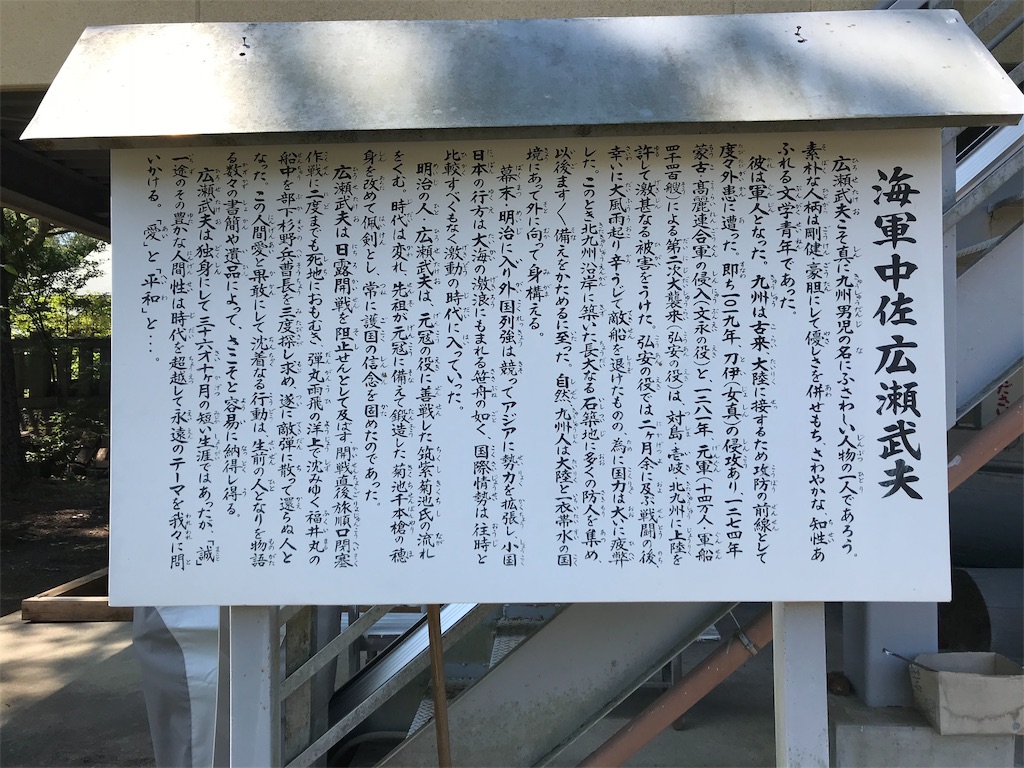 海軍中佐広瀬武夫
広瀬武夫こそ真に九州男児の名にふさわしい人物の一人であろう。
素朴な人柄は剛健・豪胆にして優しさを併せもち、さわやかな知性あ
ふれる文学青年であった。
彼は軍人となった。九州は古来、大陸に接するため攻防の前線として
度々外患に遭った。即ち一〇一九年 刀伊（女真）の侵攻あり、一二七四年
蒙古・高麗連合軍の侵入（文永の役）と一二八一年 元軍（十四万人・軍船
四千百艘）による第二次大襲来（弘安の役）は、対島・壱岐・北九州に上陸を
許して激甚なる被害をうけた。弘安の役では二ヶ月余に及ぶ戦闘の後
幸いに大風雨起り辛うじて敵船を退けたものの、為に国力は大いに疲弊
した。このとき北九州沿岸に築いた長大なる石築地に多くの防人を集め、
以後ますます備えをかためるに至った。自然、九州人は大陸と一衣帯水の国
境にあって外に向って身構える。
幕末・明治に入り外国列強は競ってアジアに勢力を拡張し小国
日本の行方は大海の激浪にもまれる笹舟の如く、国際情勢は往時と
比較すべくもなく激動の時代に入っていった。
明治の人・広瀬武夫は、元寇の役に善戦した筑紫菊池氏の流れ
をくむ。時代は変れ、先祖が元寇に備えて鍛造した菊池千本槍の穂
身を改めて佩剣とし、常に護国の信念を固めたのであった。
広瀬武夫は日露開戦を阻止せんとして及ばず、開戦直後旅順口閉塞
作戦に二度までも死地におもむき、弾丸雨飛の洋上で沈みゆく福井丸の
船中を部下杉野兵曹長を三度探し求め、遂に敵弾に散って還らぬ人と
なった。この人間愛と果敢にして沈着なる行動は、生前の人となりを物語
る数々の書簡や遺品によって、さこそと容易に納得し得る。
広瀬武夫は独身にして三十六才十月の短い生涯ではあったが、「誠」
一途のその豊かな人間性は時代を超越して永遠のテーマを我々に問
いかける。「愛」と「平和」と・・・。